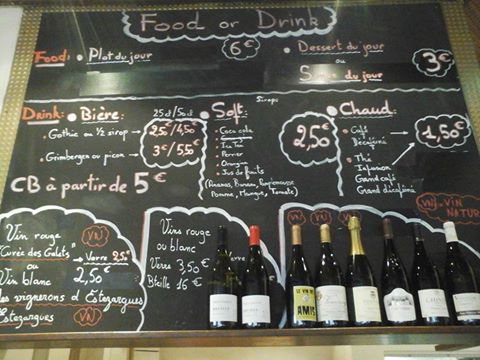 Food or Drink
Food: • Plat du jour
6€
• Dessert du jour
ou
du jour
3€
Drink: • Bière:
25cl/50cl
• Gothic ou 1/2 sirop
2,50/4,50
• Grimbergen ou picon
3€/5,50
CB à partir de 5€
• Soft:
Sirops
• Coca cola
• Ice Tea
• Perrier
• Orangina
• Jus de fruits
(Ananas, Banane, Pamplemousse
Pomme, Mangue, Tomate)
2,50€
• Chaud:
• Café
Décaféiné
• Thé
Infusion
Grand café
Grand décaféiné
1,50€
VN = VIN
NATUREL
Vin rouge
VN
"Cuvée des Galets"
Verre 2,5€
ou
2,50€
Vin blanc
Les vignerons d'Estezargues
Estezargues
VN
Vins rouge
ou blanc
Verre 3,50€
Bteille 16€
Verre
VN
VN
VN
LE VIN DE
AMIS